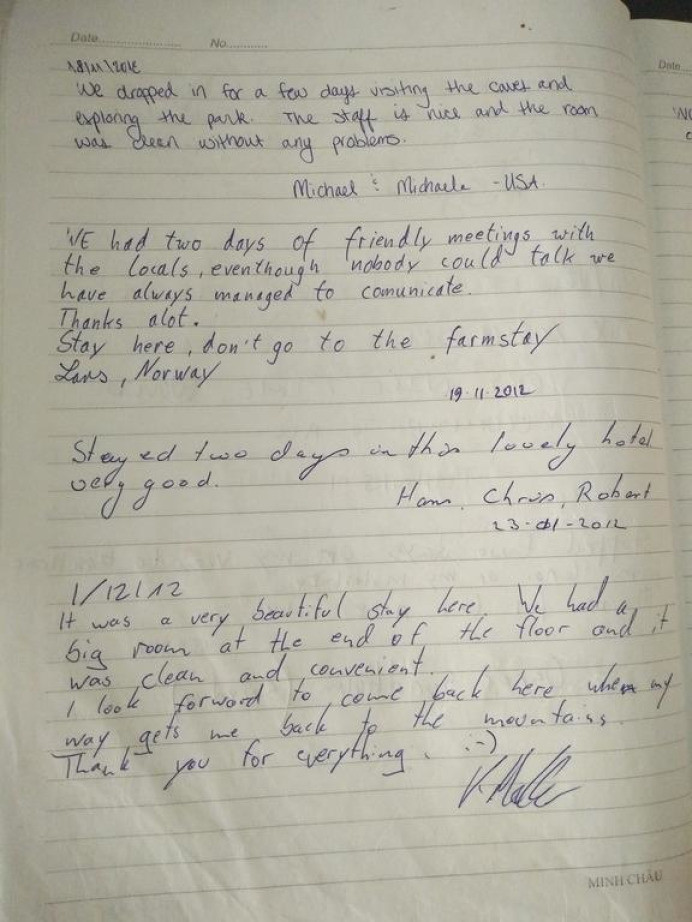 Date
No.
18/11/2012
We dropped in for a few days visiting the caves and
exploring the park. The staff is nice and the room
was clean without any problems.
Michael & Michaela - USA.
WE had two days of friendly meetings with
the locals, eventhough nobody could talk we
have always managed to comunicate.
Thanks alot.
Stay here, don't go to the farmstay
Lars, Norway
19.11.2012
Stayed two days in this lovely hotel
very good.
Hann, Chris, Robert
23-01-2012
1/12/12
It was a very beautiful stay here. We had a
big room at the end of the floor and it
was clean and convenient.
I look forward to come back here when my
way gets me back to the mountains.
Thank you for everything. :-)
MINH CHÂU
Date